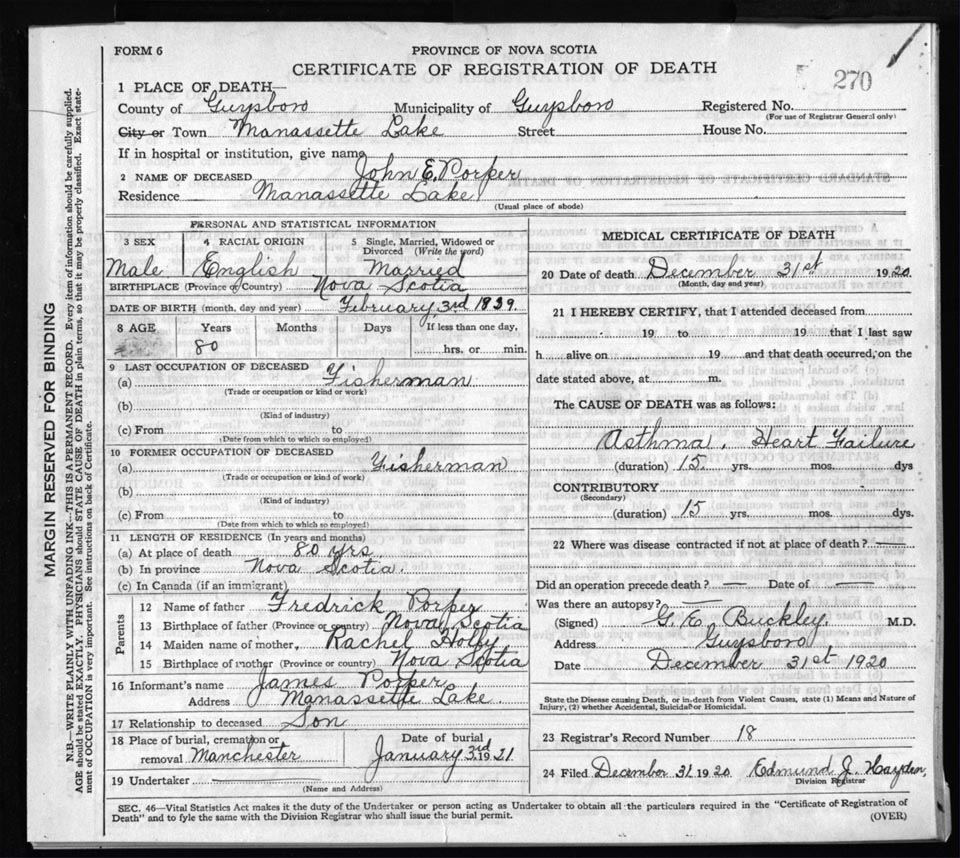 FORM 6
PROVINCE OF NOVA SCOTIA
CERTIFICATE OF REGISTRATION OF DEATH
270
1 PLACE OF DEATH—
County of Guysboro Municipality of Guysboro Registered No.
(For use of Registrar General only)
City or Town Manassette Lake Street House No.
If in hospital or institution, give name
2 NAME OF DECEASED John E. Porper
Residence Manassette Lake
(Usual place of abode)
PERSONAL AND STATISTICAL INFORMATION
3 SEX 4 RACIAL ORIGIN 5 Single, Married, Widowed or Divorced (Write the word)
Male English Married
BIRTHPLACE (Province or Country) Nova Scotia
DATE OF BIRTH (month, day and year) February 3rd 1839.
8 AGE Years Months Days If less than one day,
80 hrs. or min.
9 LAST OCCUPATION OF DECEASED Fisherman
(a)
(Trade or occupation or kind or work)
(b)
(Kind of industry)
(c) From to
(Date from which to which so employed)
10 FORMER OCCUPATION OF DECEASED
(a) Fisherman
(Trade or occupation or kind of work)
(b)
(Kind of industry)
(c) From to
(Date from which to which so employed)
11 LENGTH OF RESIDENCE (In years and months)
(a) At place of death 80 yrs
(b) In province Nova Scotia.
(c) In Canada (if an immigrant)
Parents
12 Name of father Fredrick Porper
13 Birthplace of father (Province or country) Nova Scotia
14 Maiden name of mother. Rachel
15 Birthplace of mother (Province or country) Nova Scotia
16 Informant's name James Porper
Address Manassette Lake.
17 Relationship to deceased Son
18 Place of burial, cremation or removal Manchester Date of burial January 3rd 1921
19 Undertaker
(Name and Address)
MEDICAL CERTIFICATE OF DEATH
20 Date of death December 31st 1920
(Month, day and year)
21 I HEREBY CERTIFY, that I attended deceased from
19 to 19 that I last saw
h alive on 19 and that death occurred, on the
date stated above, at m.
The CAUSE OF DEATH was as follows:
Asthma. Heart Failure
(duration) 15. yrs. mos. dys
CONTRIBUTORY
(Secondary)
(duration) 15 yrs. mos. dys.
22 Where was disease contracted if not at place of death? —
Did an operation precede death? — Date of —
Was there an autopsy? —
(Signed) G. E. Buckley. M.D.
Address Guysboro
Date December 31st 1920
State the Disease causing Death, or in death from Violent Causes, state (1) Means and Nature of
Injury, (2) whether Accidental, Suicidal or Homicidal.
23 Registrar's Record Number 18
24 Filed December 31 1920 Edmund J. Hayden,
Division Registrar
SEC. 46—Vital Statistics Act makes it the duty of the Undertaker or person acting as Undertaker to obtain all the particulars required in the "Certificate of Registration of
Death" and to fyle the same with the Division Registrar who shall issue the burial permit.
(OVER)
MARGIN RESERVED FOR BINDING
N.B.—WRITE PLAINLY WITH UNFADING INK—THIS IS A PERMANENT RECORD. Every item of information should be carefully supplied.
AGE should be stated EXACTLY. PHYSICIANS should STATE CAUSE OF DEATH in plain terms, so that it may be properly classified. Exact state-
ment of OCCUPATION is very important. See instructions on back of Certificate.